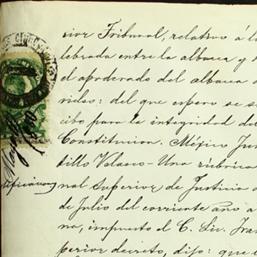 rior Tribunal, relativo á l
lebrada entre la albacea y
el apoderado del albacea
nidos: del que espero se se
cibo para la integridad de
Constitucion. Méjico Jun
tillo Velasco - Una rúbrica
nal Superior de Justicia
de Julio del corriente año a
no, impuesto el C. Lic. Fran
perior decreto, dijo: que